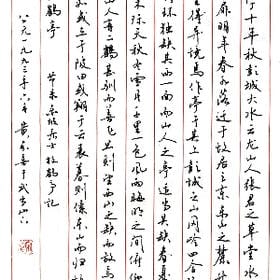 宁十年秋彭城大水云龙山人張君之草堂
扉明年春水落迁于故居之東東山之麓
望得异境焉作亭于其上彭城之山冈岭四合
环独缺其西一面而山人之亭适当其缺春夏
木际天秋冬雪月千里一色风雨晦明之间俯仰
山人有二鹤甚驯而善飞旦则望西山之缺而放焉
如或立于陂田或翔于云表暮则傃东山而归
鹤亭
节录东坡居士放鹤亭记
公元一九九三年六月